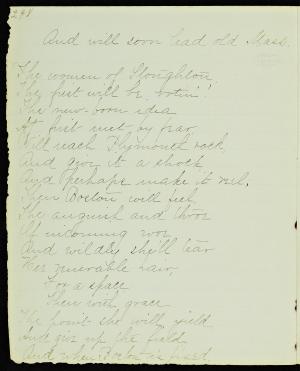 248
And will soon lead old Mass.
The women of Stoughton,
The first will be votin'!
The new-born idea
At first met by fear
Will reach Plymouth rock,
And give it a shock
And perhaps make it reel,
Then Boston will feel,
The anguish and throe
Of incoming woe,
And wildly she'll tear
Her venerable hair,
For a space
Then with grace
The point she will yield
And give up the field
And when Boston is fixed